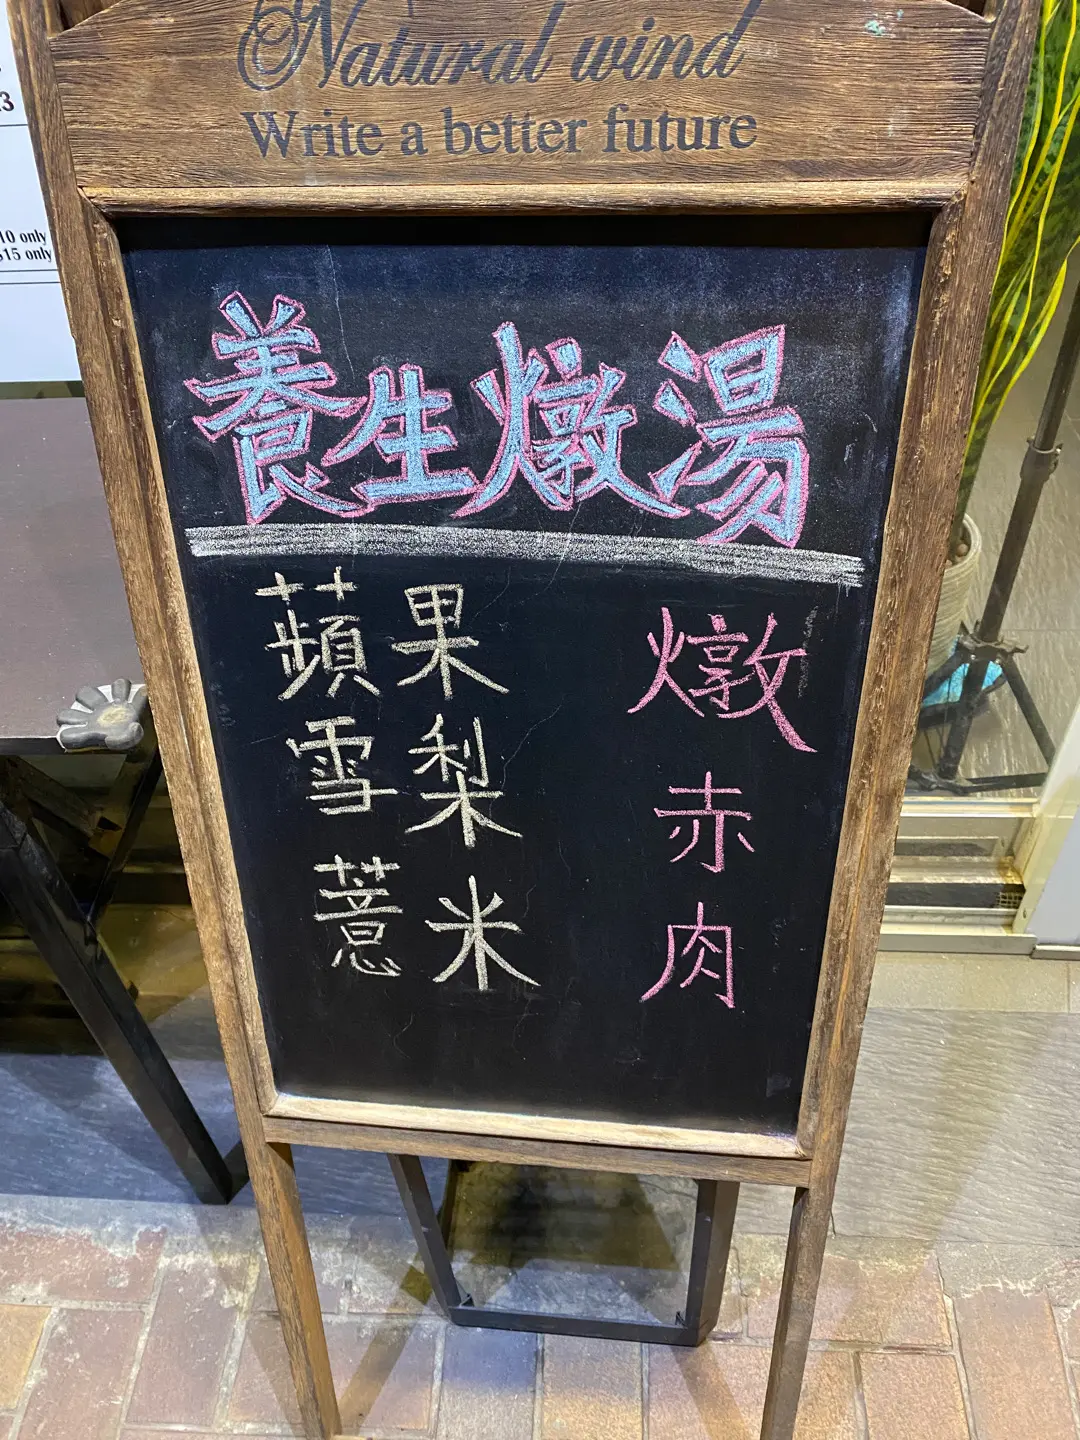 Natural wind
Write a better future
3
10 only
$15 only
養生燉湯
蘋果
雪梨
薏米
燉赤肉